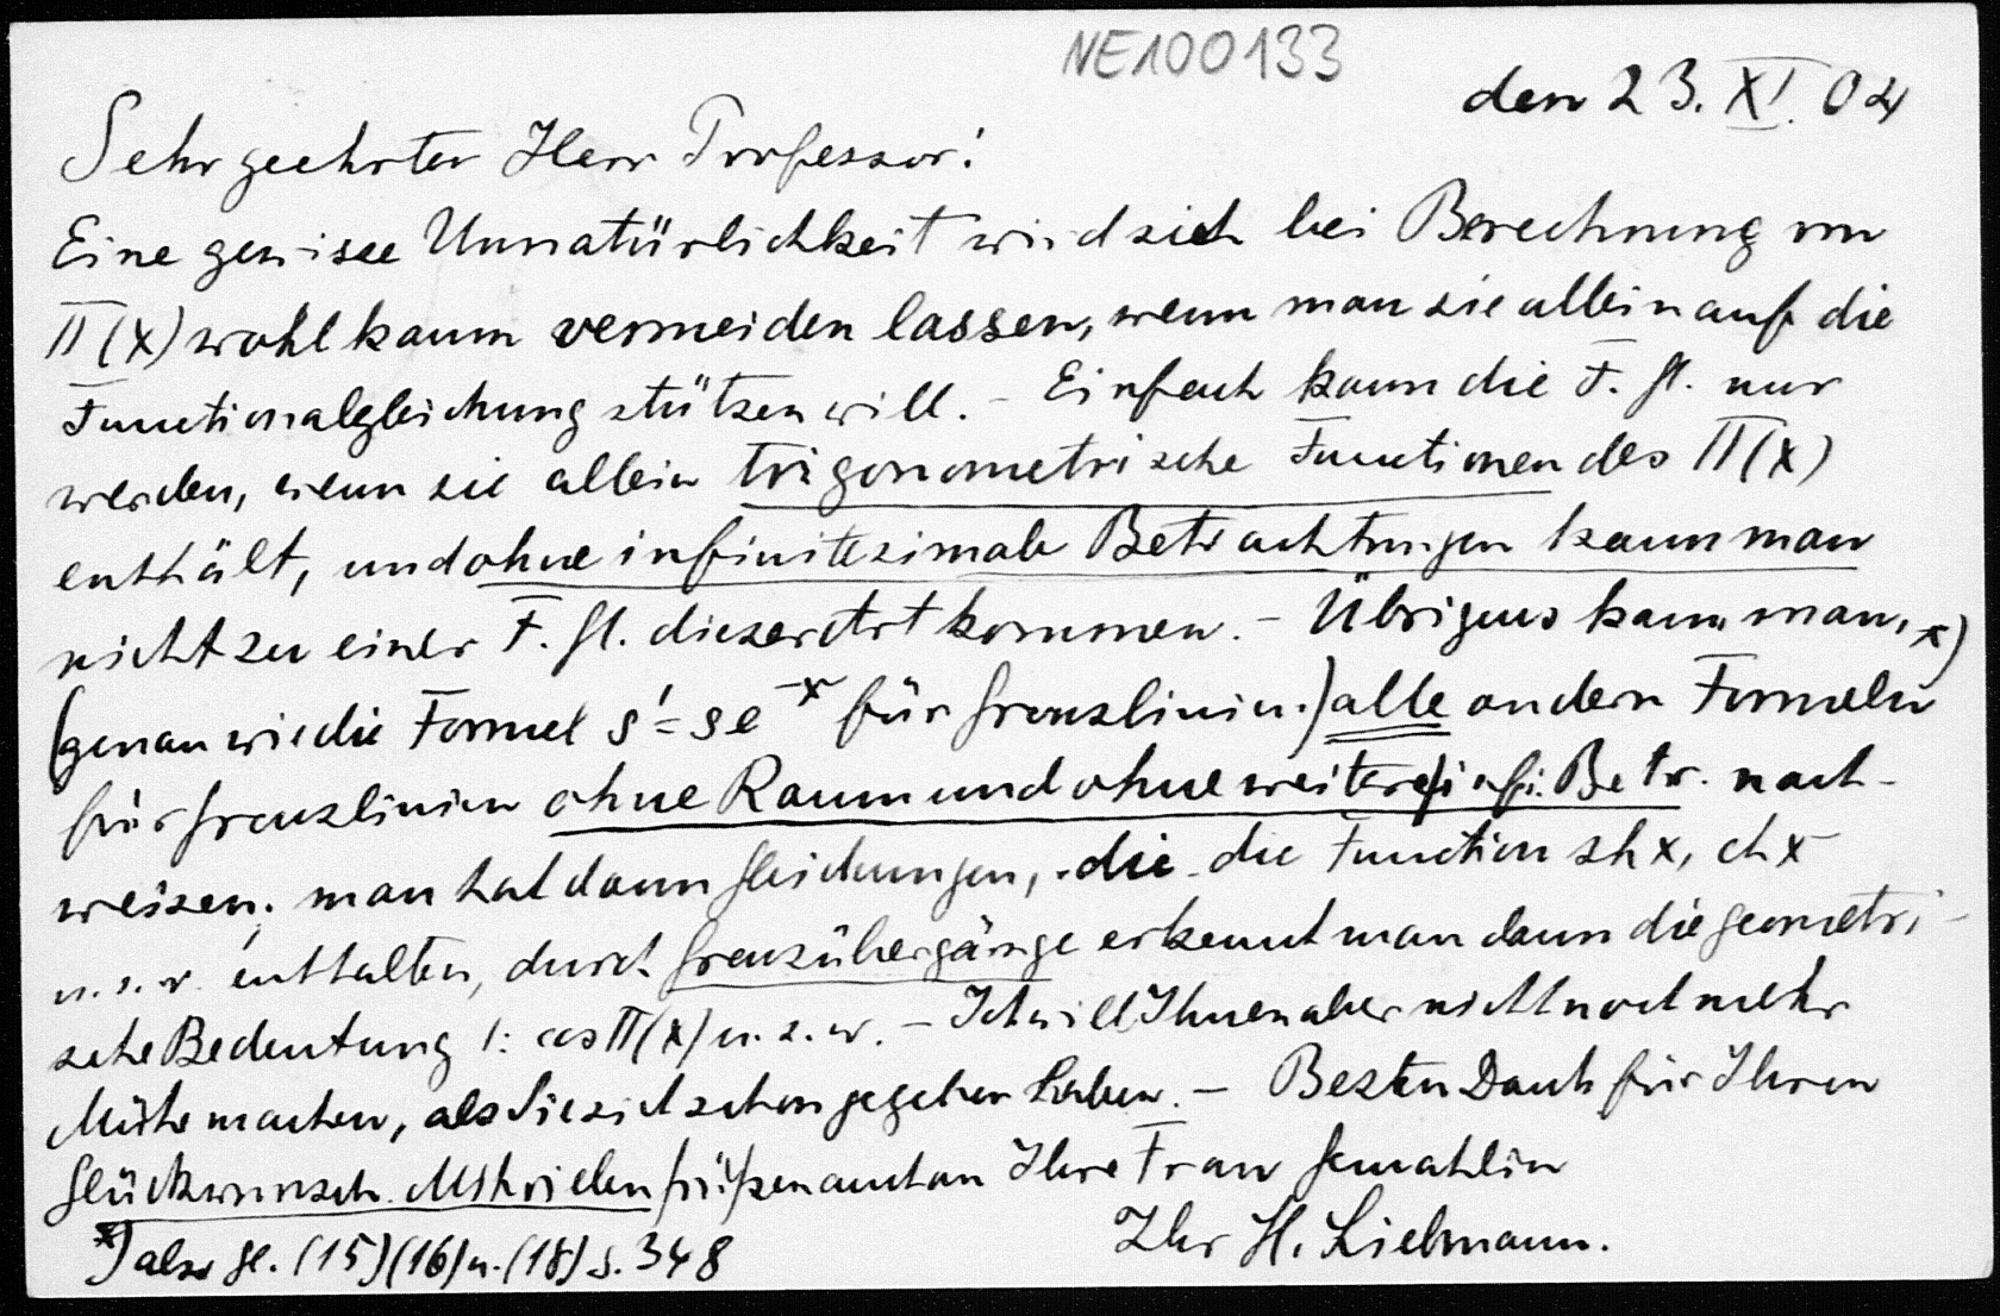 NE100133
den 23. XI. 04
Sehr geehrter Herr Professor!
Eine gewisse Unnatürlichkeit wird sich bei Berechnung von
Π(x) wohl kaum vermeiden lassen, wenn man sie allein auf die
Functionalgleichung stützen will. – Einfach kann die F. Gl. nur
werden, wenn sie allein trigonometrische Functionen des Π(x)
enthält, und ohne infinitesimale Betrachtungen kann man
nicht zu einer F. Gl. dieser Art kommen. – Übrigens kann man,
(genau wie die Formel s' = s e^-x für Grenzlinien.) alle andern Formeln *)
für Grenzlinien ohne Raum und ohne weitere infi. Betr. nach-
weisen; man hat dann Gleichungen, die die Function sh x, ch x
u. s. w. enthalten, durch Grenzübergänge erkennt man dann die geometri-
sche Bedeutung 1: cos Π(x) u. s. w. – Ich will Ihnen aber nicht noch mehr
Mühe machen, als Sie sich schon gegeben haben. – Besten Dank für Ihren
Glückwunsch. Mit vielen Grüßen auch an Ihre Frau Gemahlin
Ihr H. Liebmann.
*) also Gl. (15) (16) u. (18) S. 348